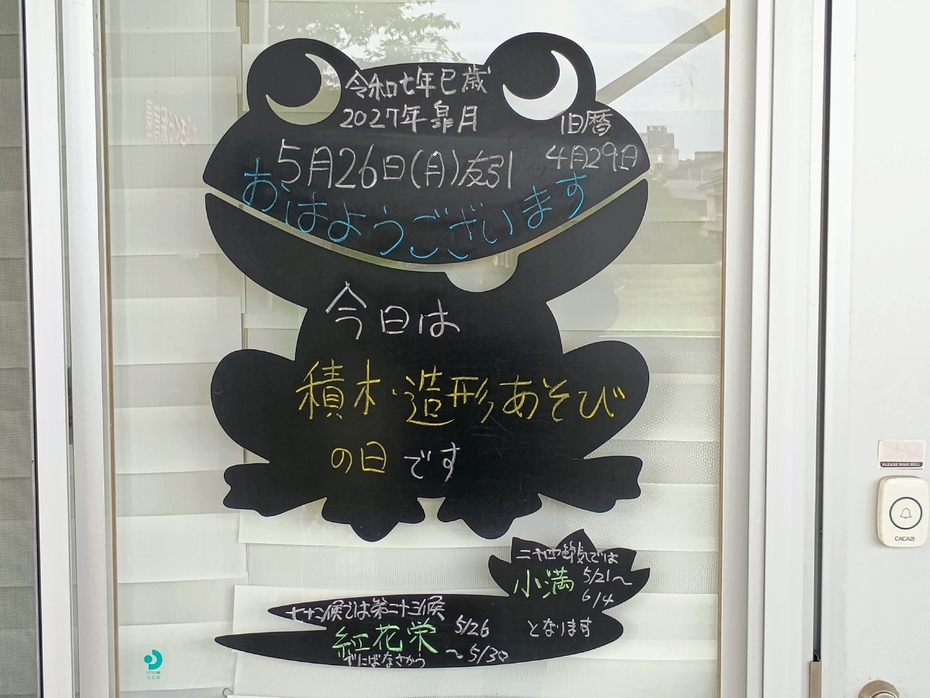 令和七年巳歳
2027年 皐月
旧暦
4月29日
5月26日(月)友引
おはようございます
今日は
積木・造形あそび
の日です
二十四節気では
小満 5/21〜
6/4
となります
七十二候では第二十三候
紅花栄 5/26
〜5/30
べにばなさかう
PLEASE RING BELL
CACAZI